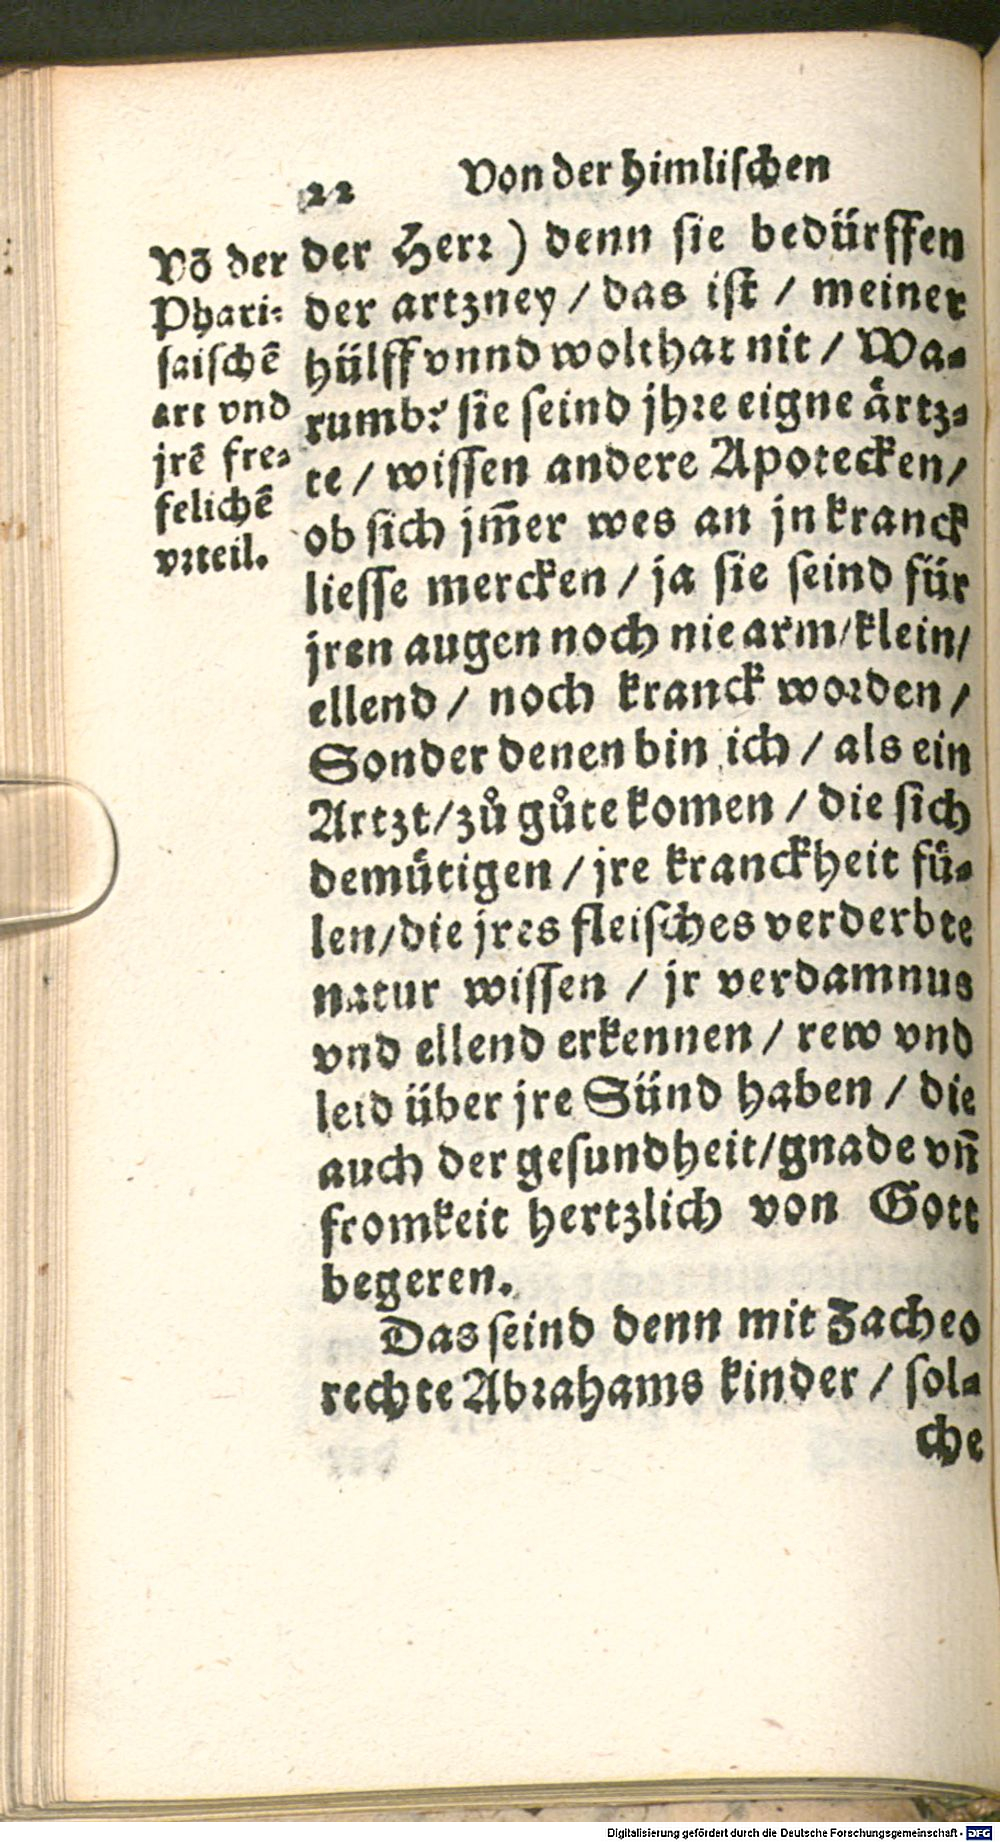 22 Von der himlischen
Võ der
Phari-
saischẽ
art vnd
jrẽ fre-
felichẽ
vrteil.
der Herr) denn sie bedürffen
der artzney / das ist / meiner
hülff vnnd wolthat nit / Wa-
rumb? sie seind jhre eigne ärtz-
te / wissen andere Apotecken /
ob sich jm̃er wes an jn kranck
liesse mercken / ja sie seind für
jren augen noch nie arm / klein /
ellend / noch kranck worden /
Sonder denen bin ich / als ein
Artzt / zů gůte komen / die sich
demütigen / jre kranckheit fü-
len / die jres fleisches verderbte
natur wissen / jr verdamnus
vnd ellend erkennen / rew vnd
leid über jre Sünd haben / die
auch der gesundheit / gnade vñ
fromkeit hertzlich von Gott
begeren.
Das seind denn mit Zacheo
rechte Abrahams kinder / sol-
che
Digitalisierung gefördert durch die Deutsche Forschungsgemeinschaft - DFG